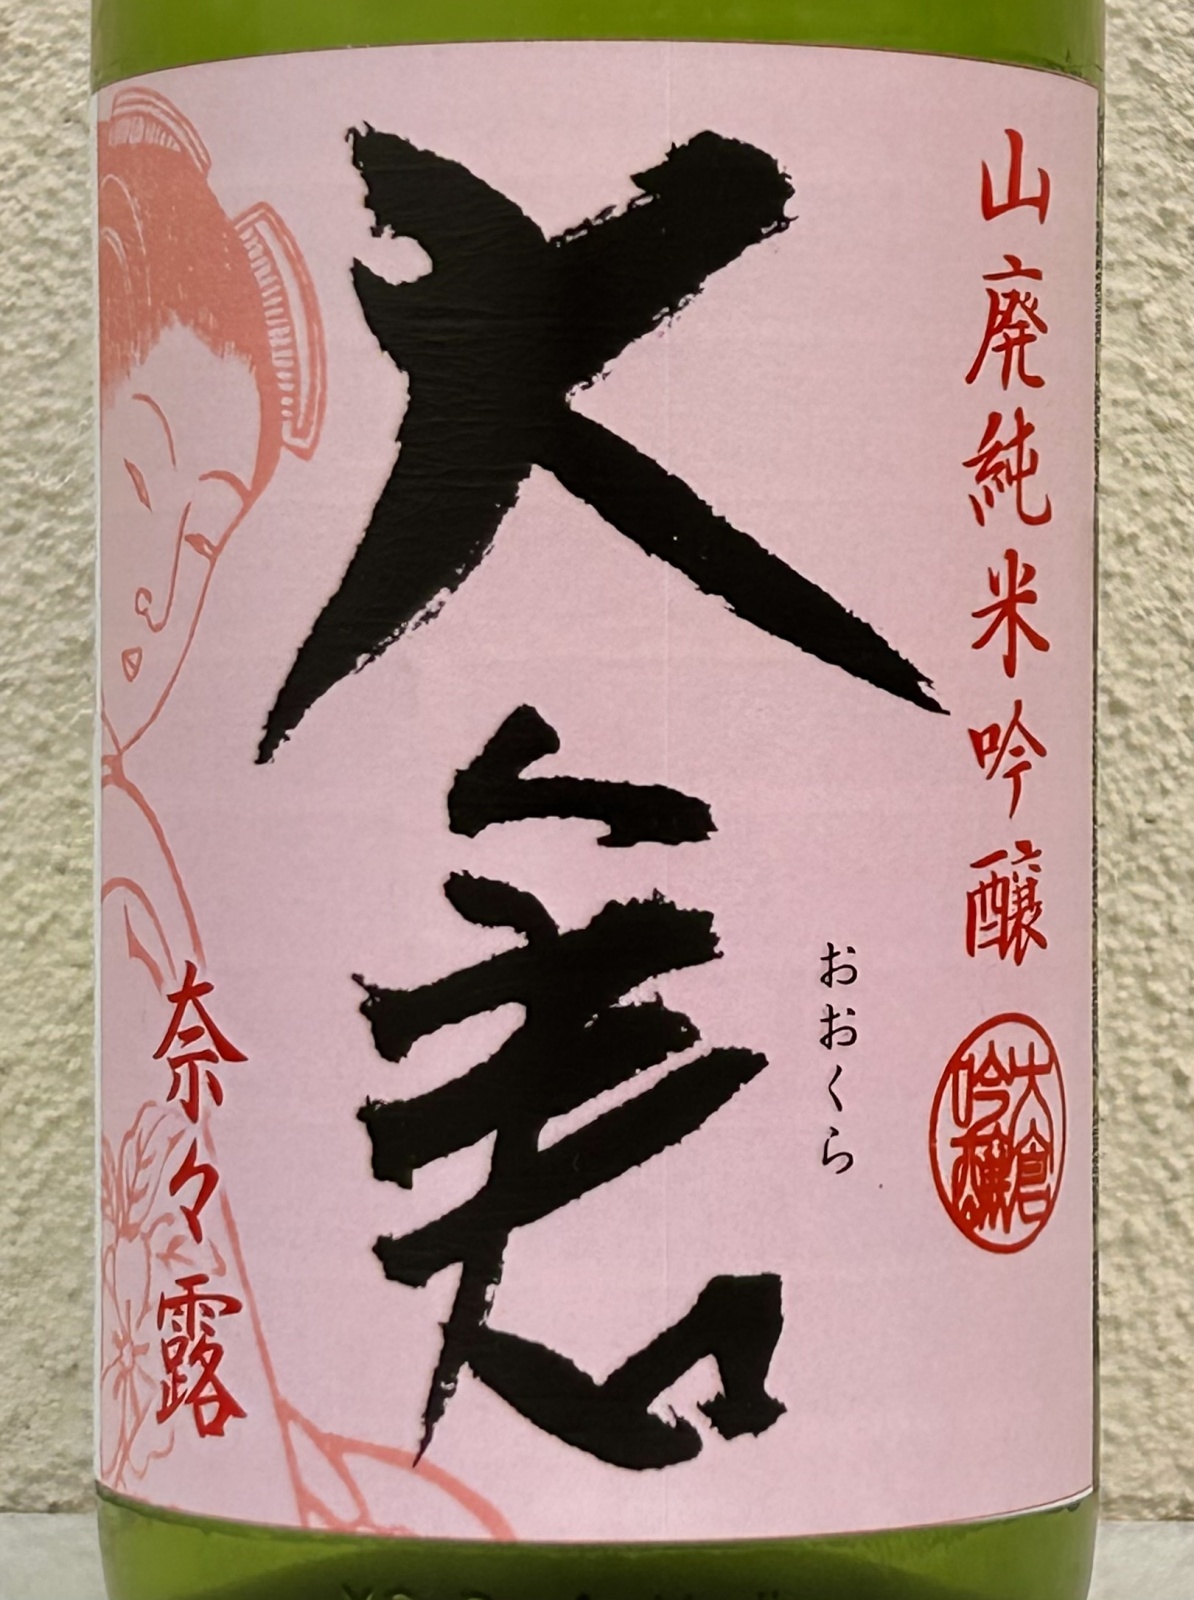 山廃純米吟醸
大倉
吟醸
おおくら
大倉
奈々露